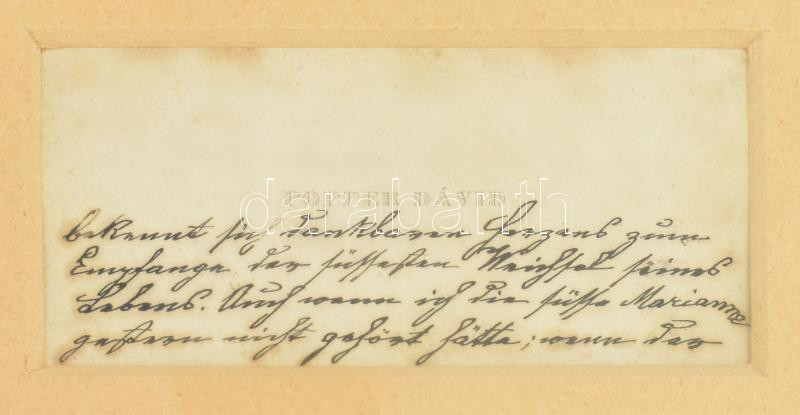 POPPER DÁVID
darabanth
bekennt sich dankbaren Herzens zum
Empfange der süssesten Weichsel seines
Lebens. Auch wenn ich die süsse Marianne
gestern nicht gehört hätte; wenn der